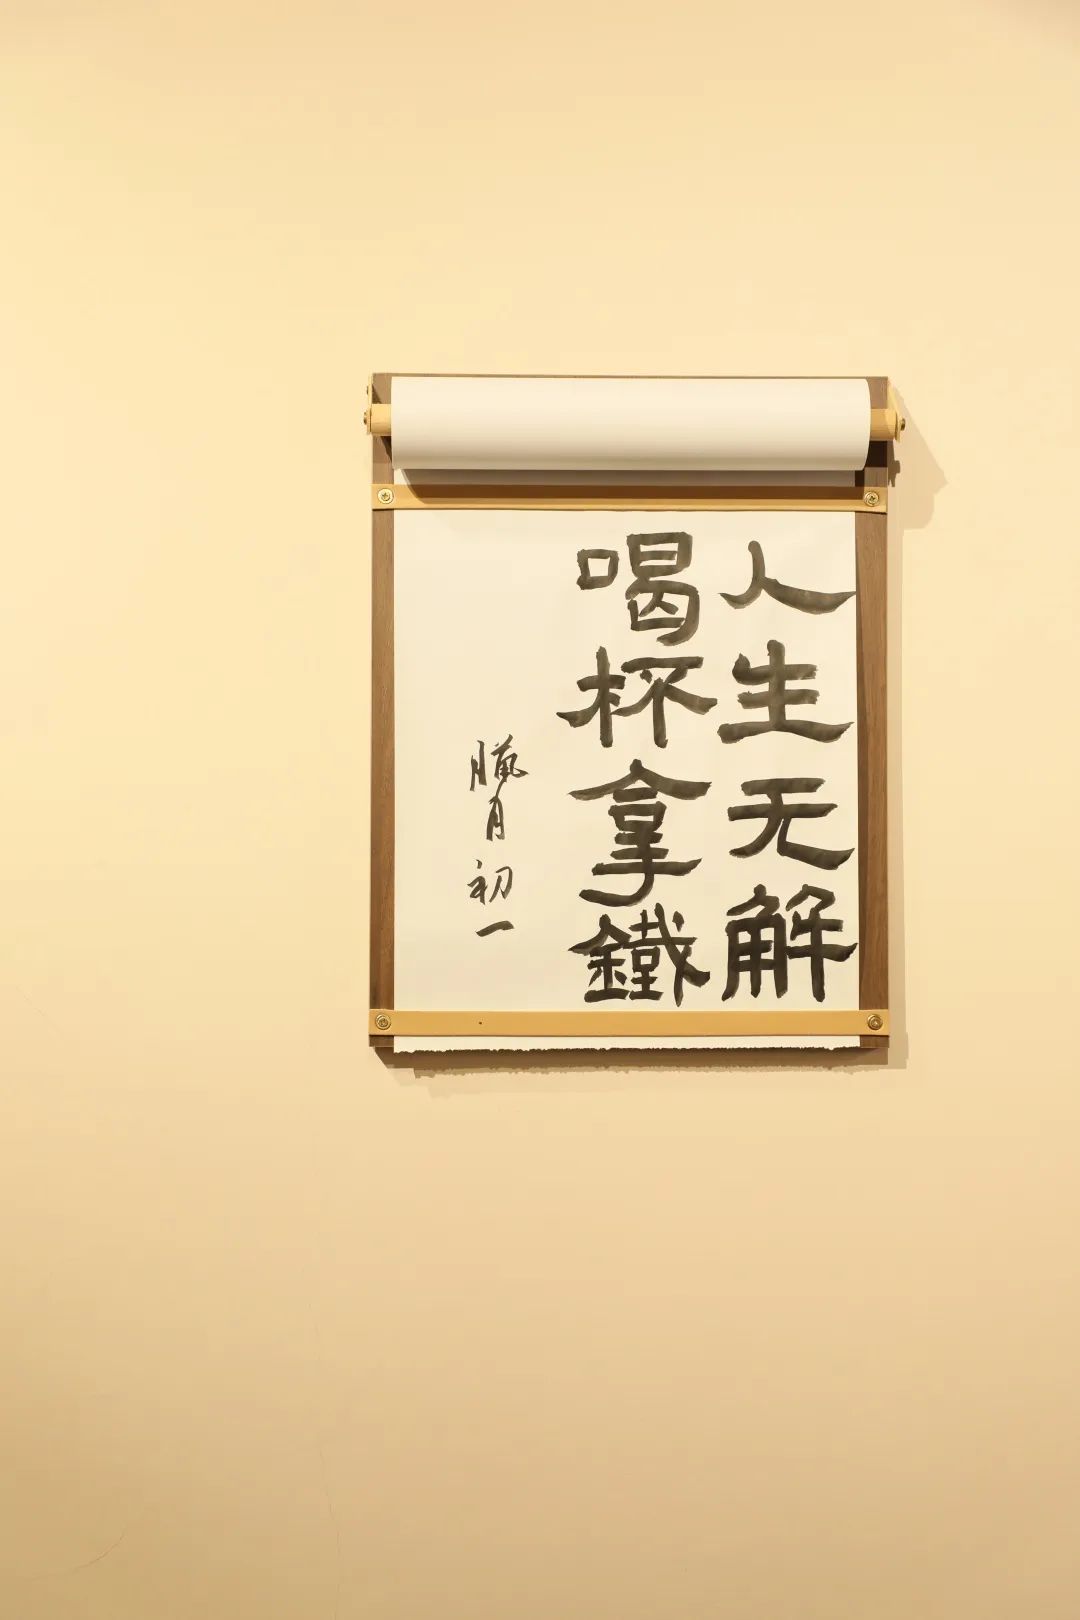 人生无解
喝杯拿鐵
臘月初一